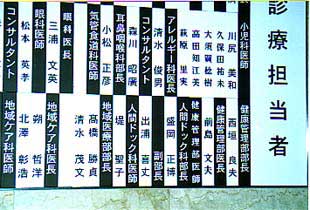 診療担当者
小児科医師
川尻 美和
久保田祐未
大須賀 桜樹
高田知江美
萩原 里実
アレルギー科医長
清水 俊男
コンサルタント
森川 昭廣
耳鼻咽喉科部長
小松 正彦
気管食道科医師
眼科医長
三浦 文英
眼科医師
松本 英孝
コンサルタント
健康管理部部長
西垣 良夫
健康管理部医長
前島 文夫
健康管理部医師
人間ドック科部長
盛岡 正博
副部長
出浦 喜丈
人間ドック科医師
堤 聖子
地域医療部部長
髙橋 勝貞
清水 茂文
地域ケア科医長
朔 哲洋
北澤 彰浩
地域ケア科医師